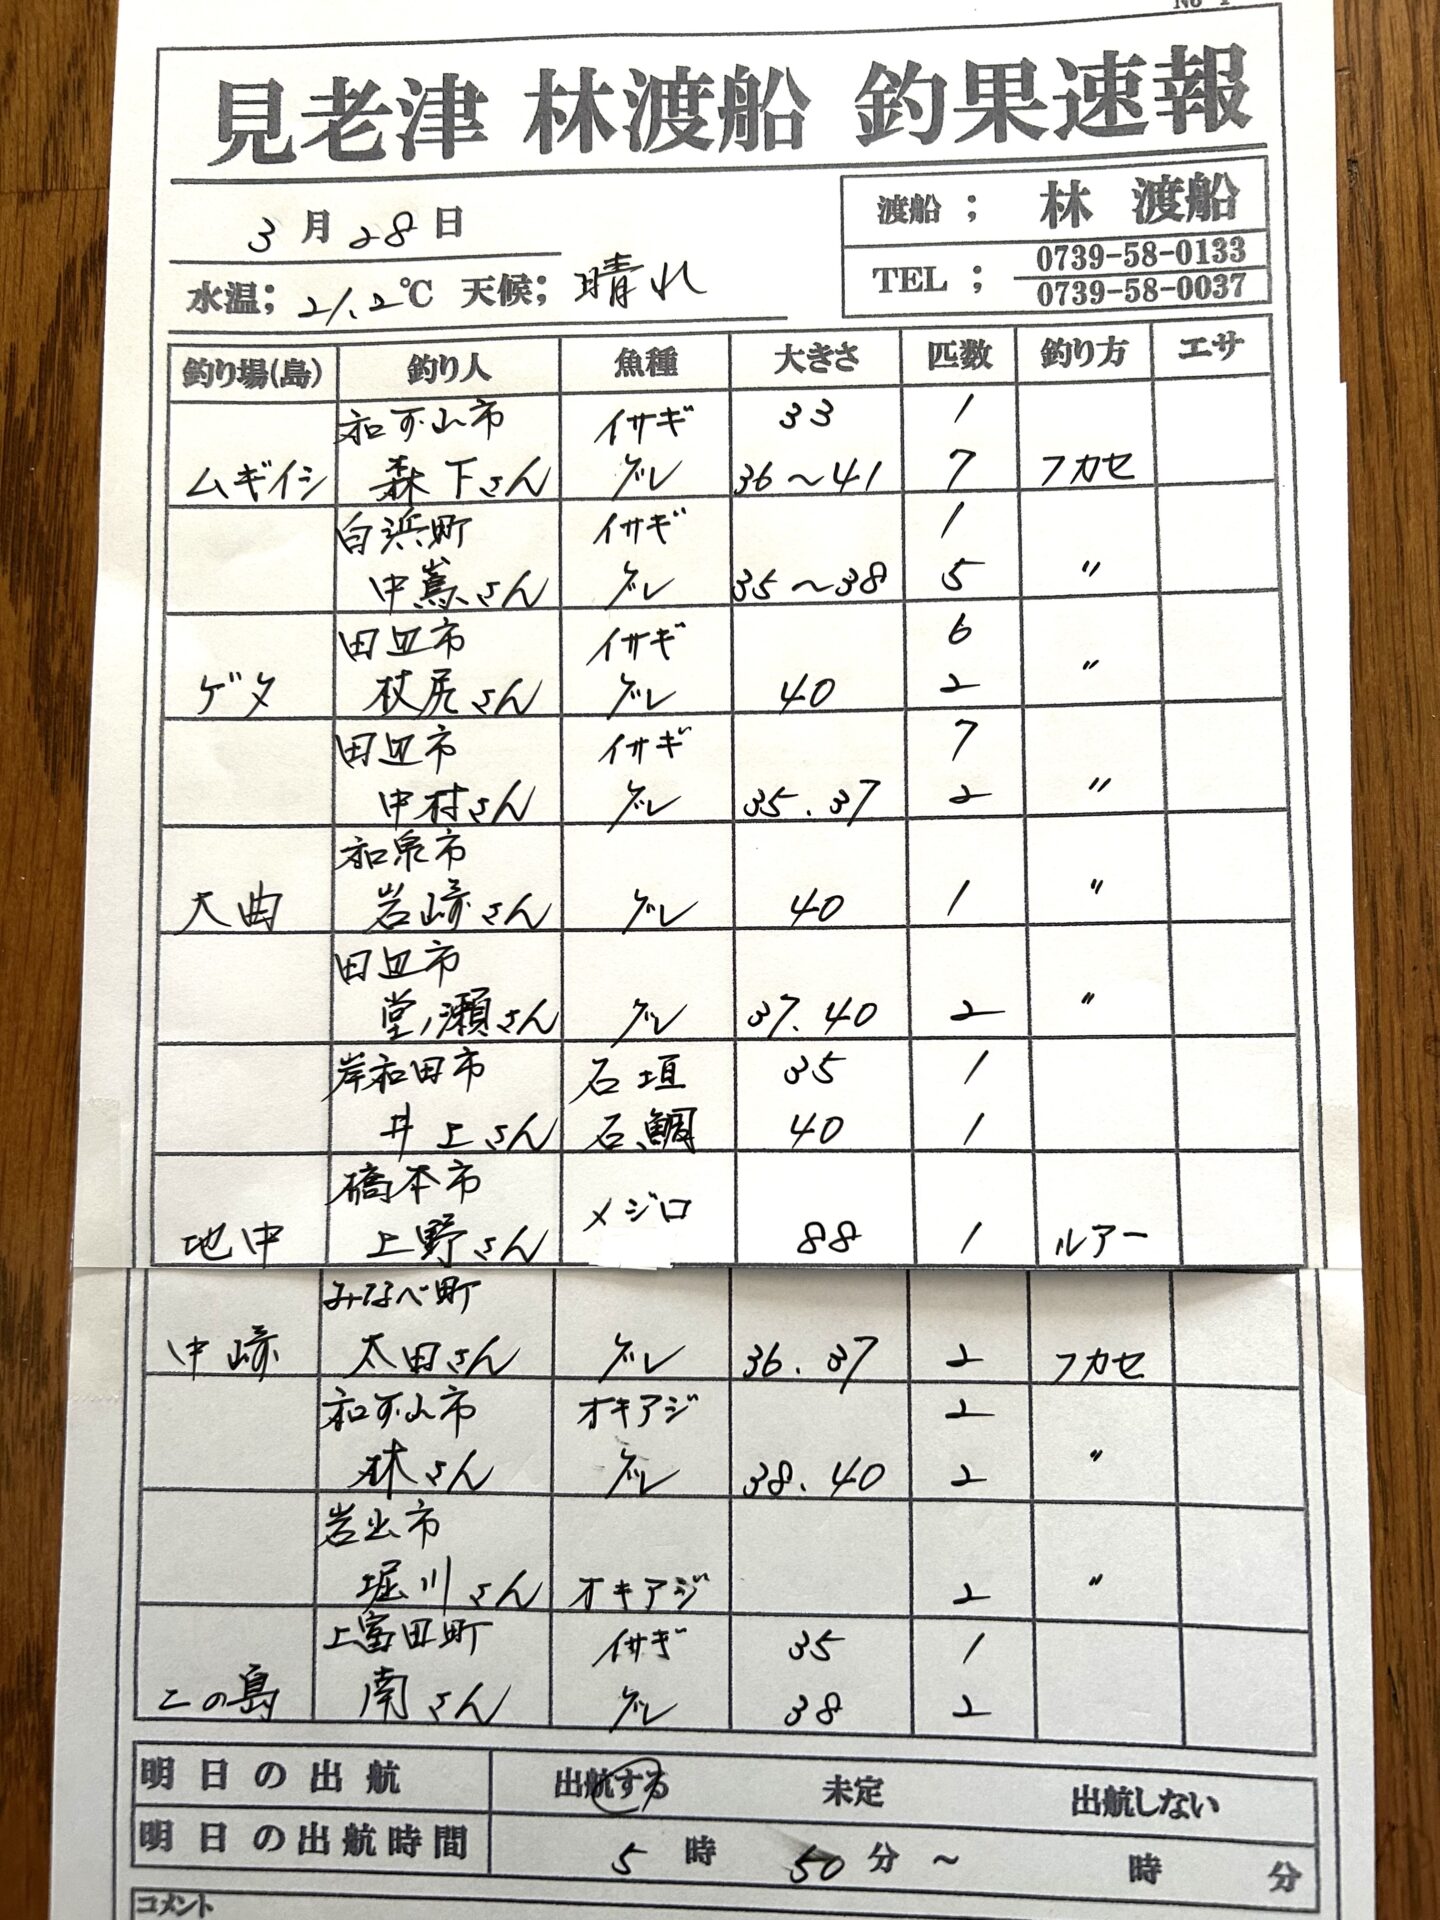 No 1
見老津 林渡船 釣果速報
3月28日
渡船 ; 林 渡船
水温; 21.2℃ 天候; 晴れ
TEL ; 0739-58-0133
0739-58-0037
釣り場(島) 釣り人 魚種 大きさ 匹数 釣り方 エサ
和歌山市 イサギ 33 1
ムギイシ 森下さん グレ 36〜41 7 フカセ
白浜町 イサギ 1
中嶌さん グレ 35〜38 5 〃
田辺市 イサギ 6
ゲタ 杖尻さん グレ 40 2 〃
田辺市 イサギ 7
中村さん グレ 35.37 2 〃
和泉市
大曲 岩崎さん グレ 40 1 〃
田辺市
堂ノ瀬さん グレ 37.40 2 〃
岸和田市 石垣 35 1
井上さん 石鯛 40 1
橋本市 メジロ
地中 上野さん 88 1 ルアー
みなべ町
中崎 太田さん グレ 36.37 2 フカセ
和歌山市 オキアジ 2
林さん グレ 38.40 2 〃
岩出市
堀川さん オキアジ 2 〃
上富田町 イサギ 35 1
この島 南さん グレ 38 2
明日の出航 出航する 未定 出航しない
明日の出航時間 5 時 50 分 ~ 時 分
コメント